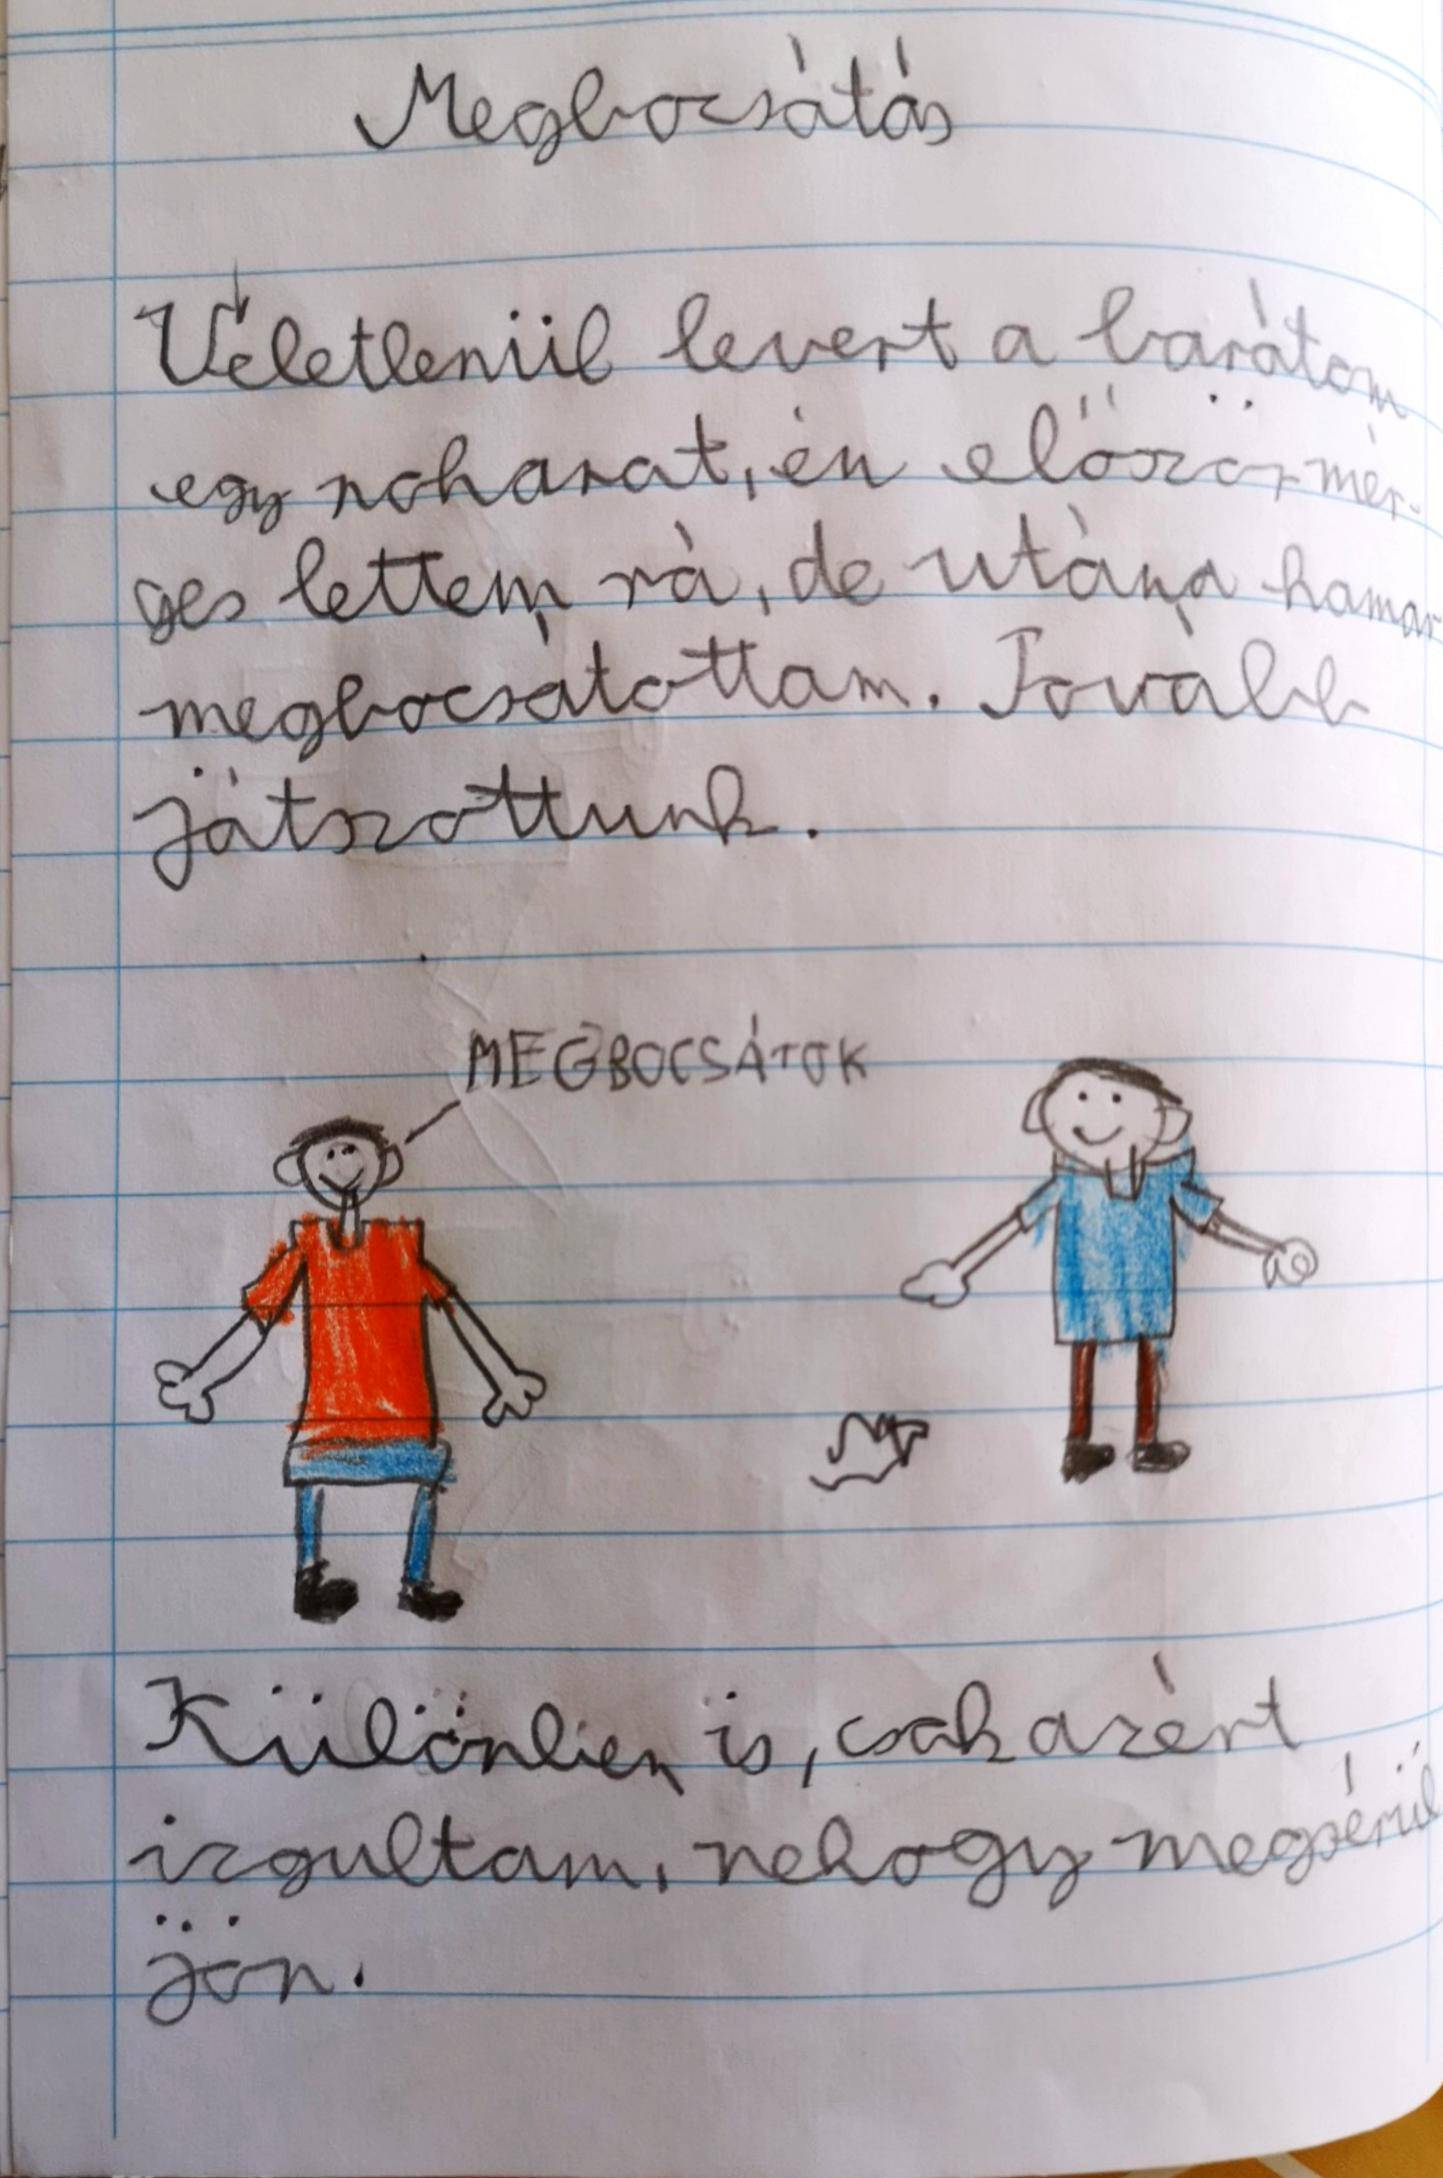 Megbocsátás
Véletlenül levert a barátom
egy poharat, én először mér-
ges lettem rá, de utána hamar
megbocsátottam. Tovább
játszottunk.
MEGBOCSÁTOK
Különben is, csak azért
izgultam, nehogy megsérül
jön.